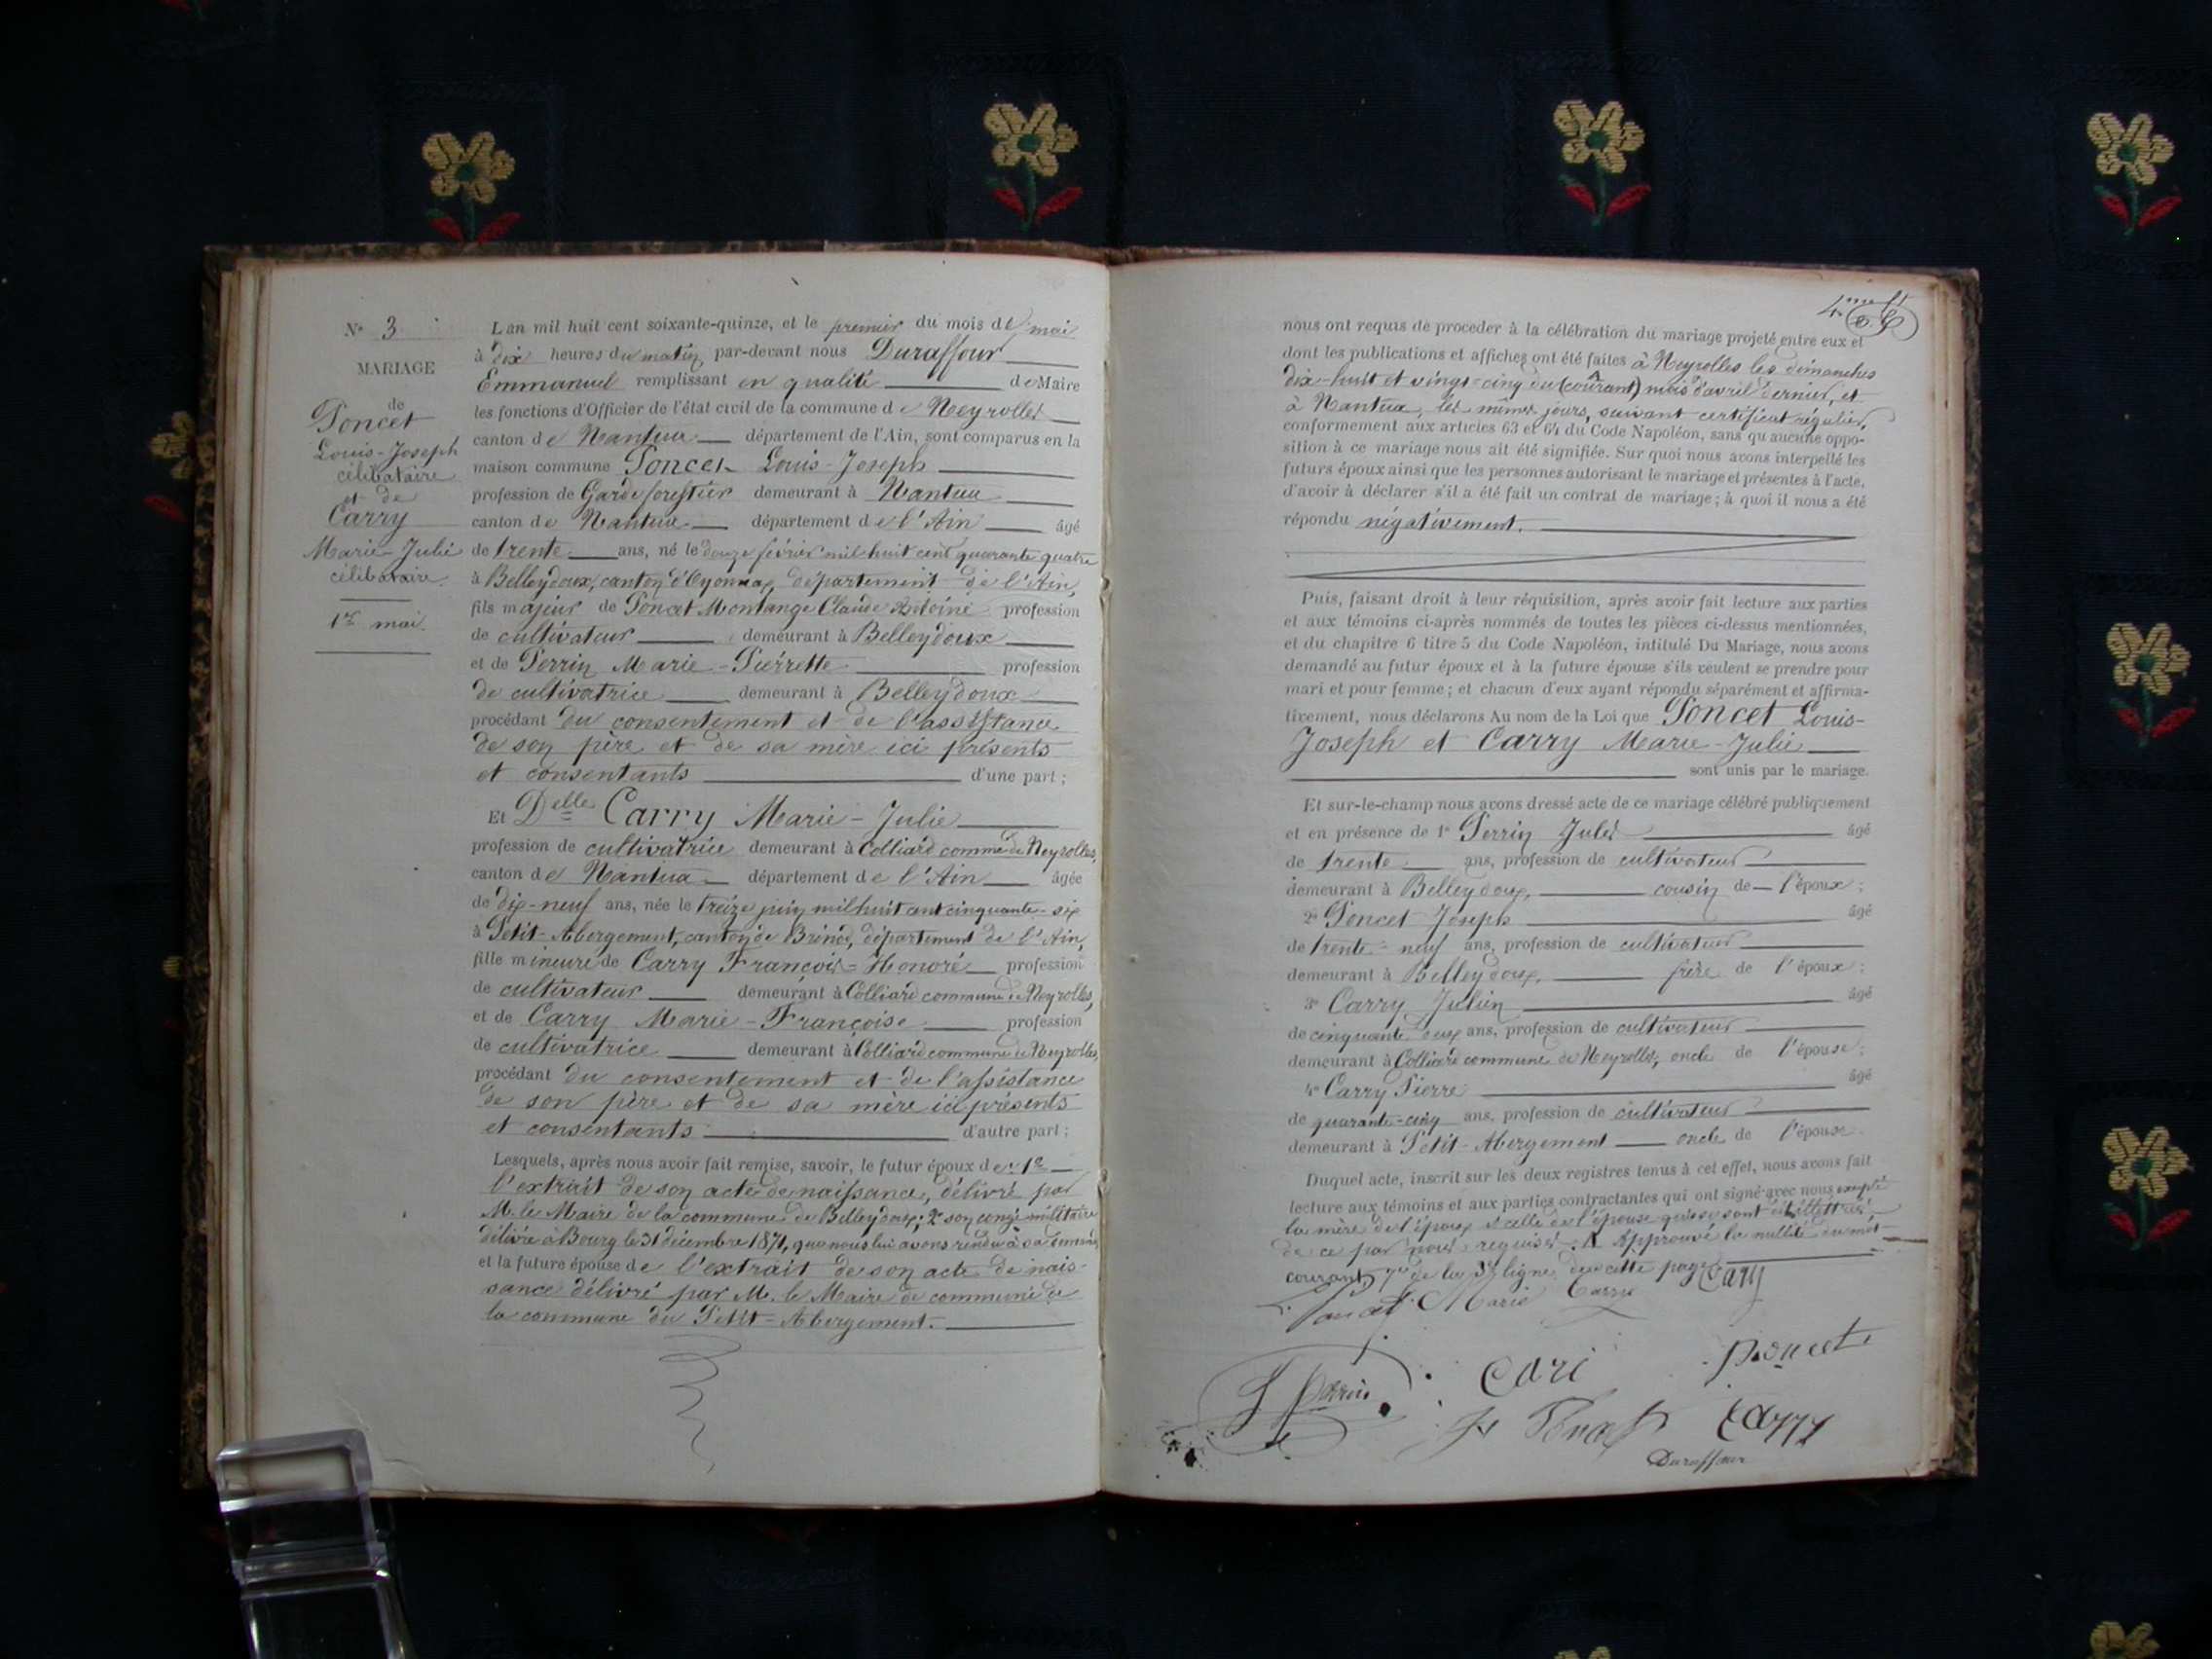 N° 3
MARIAGE
de
Poncet
Louis-Joseph
célibataire
et de
Carry
Marie-Julie
célibataire.
1er mai.
L'an mil huit cent soixante-quinze, et le premier du mois de mai
à dix heures du matin par-devant nous Duraffour
Emmanuel remplissant en qualité de Maire
les fonctions d'Officier de l'état civil de la commune de Neyrolles
canton de Nantua département de l'Ain, sont comparus en la
maison commune Poncet Louis-Joseph
profession de Garde forestier demeurant à Nantua
canton de Nantua département de l'Ain âgé
de trente ans, né le douze février mil huit cent quarante quatre
à Belleydoux, canton d'Oyonnax, département de l'Ain,
fils majeur de Poncet Montange Claude Antoine profession
de cultivateur demeurant à Belleydoux
et de Perrin Marie-Pierrette profession
de cultivatrice demeurant à Belleydoux
procédant du consentement et de l'assistance
de son père et de sa mère ici présents
et consentants d'une part ;
Et Delle Carry Marie-Julie
profession de cultivatrice demeurant à Colliard comme de Neyrolles,
canton de Nantua département de l'Ain âgée
de dix-neuf ans, née le treize juin mil huit cent cinquante-six
à Petit-Abergement, canton de Brénod, département de l'Ain,
fille mineure de Carry François-Honoré profession
de cultivateur demeurant à Colliard commune de Neyrolles,
et de Carry Marie-Françoise profession
de cultivatrice demeurant à Colliard commune de Neyrolles,
procédant du consentement et de l'assistance
de son père et de sa mère ici présents
et consentants d'autre part ;
Lesquels, après nous avoir fait remise, savoir, le futur époux de : 1°
l'extrait de son acte de naissance, délivré par
M. le Maire de la commune de Belleydoux; 2° son congé militaire
délivré à Bourg le 31 décembre 1871, que nous lui avons rendu à sa demande,
et la future épouse de l'extrait de son acte de nais-
sance délivré par M. le Maire de commune de
la commune du Petit-Abergement.
4me ft
nous ont requis de procéder à la célébration du mariage projeté entre eux et
dont les publications et affiches ont été faites à Neyrolles les dimanches
dix-huit et vingt-cinq du (courant) mois d'avril dernier, et
à Nantua, les mêmes jours, suivant certificat régulier,
conformément aux articles 63 et 64 du Code Napoléon, sans qu'aucune oppo-
sition à ce mariage nous ait été signifiée. Sur quoi nous avons interpellé les
futurs époux ainsi que les personnes autorisant le mariage et présentes à l'acte,
d'avoir à déclarer s'il a été fait un contrat de mariage ; à quoi il nous a été
répondu négativement.
Puis, faisant droit à leur réquisition, après avoir fait lecture aux parties
et aux témoins ci-après nommés de toutes les pièces ci-dessus mentionnées,
et du chapitre 6 titre 5 du Code Napoléon, intitulé Du Mariage, nous avons
demandé au futur époux et à la future épouse s'ils veulent se prendre pour
mari et pour femme ; et chacun d'eux ayant répondu séparément et affirma-
tivement, nous déclarons Au nom de la Loi que Poncet Louis-
Joseph et Carry Marie-Julie
sont unis par le mariage.
Et sur-le-champ nous avons dressé acte de ce mariage célébré publiquement
et en présence de 1° Perrin Jules âgé
de trente ans, profession de cultivateur
demeurant à Belleydoux, cousin de l'époux ;
2° Poncet Joseph âgé
de trente-neuf ans, profession de cultivateur
demeurant à Belleydoux, frère de l'époux ;
3° Carry Julien âgé
de cinquante deux ans, profession de cultivateur
demeurant à Colliard commune de Neyrolles, oncle de l'épouse ;
4° Carry Pierre âgé
de quarante-cinq ans, profession de cultivateur
demeurant à Petit-Abergement oncle de l'épouse.
Duquel acte, inscrit sur les deux registres tenus à cet effet, nous avons fait
lecture aux témoins et aux parties contractantes qui ont signé avec nous excepté
la mère de l'époux et celle de l'épouse qui se sont dites illettrées
de ce par nous requises. Approuvé la nullité du mot
courant, 7me de la 3e ligne de cette page
Poncet Marie Carry Cary
J Perrin Cari Poncet
J. Poncet Carry
Duraffour